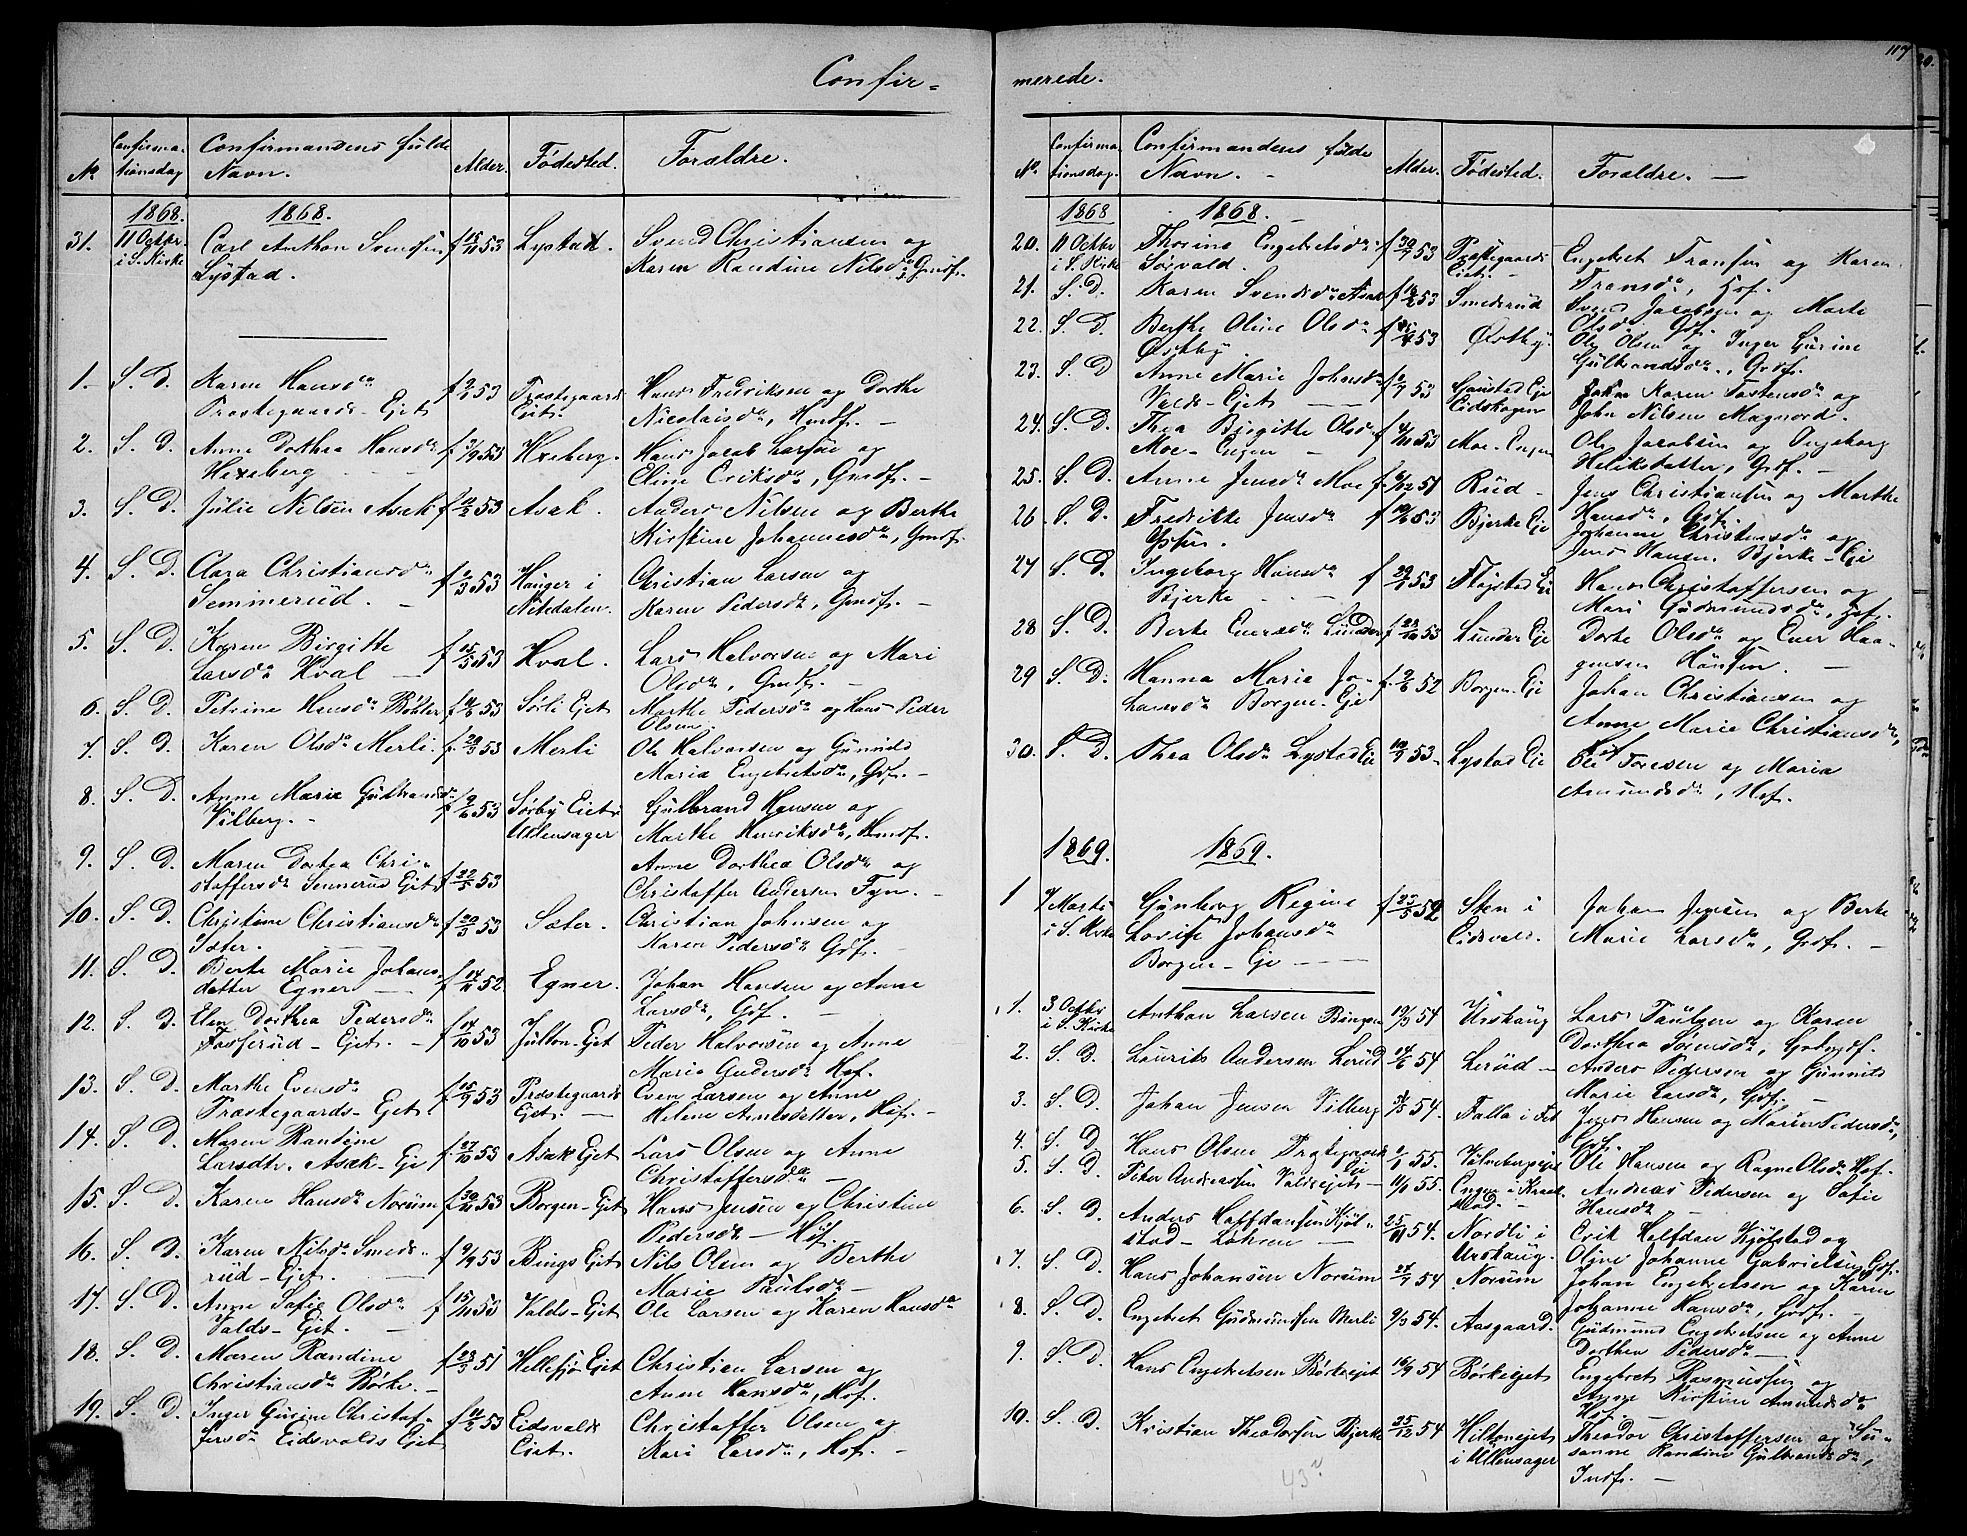 Confir-
No
Confirma-
tionsdag
Confirmandens fulde
Navn.
Alder.
Fødested.
Forældre.
1868.
1868.
31.
11 Octbr
i S. Kirke
Carl Anthon Svendsen
Lystad.
f 15/11 53
Lystad.
Svend Christiansen og
Karen Randine Nilsda Gmdf.
1. S. D.
Karen Hansda
Præstegaards-Ejet
53
Præstegaards
Eiet.
Hans Fredriksen og Dorthe
Nicolaisda, Hmdf. -
2. S. D.
Anne Dorthea Hansda
Hexeberg
f 3/9 53
Hxeberg.
Hans Jacob Larsen og
Eline Eriksda, Gmdf. -
3. S. D.
Julie Nilsen Asak
f 53
Asak.
Anders Nilsen og Berthe
Kirstine Johannesda, Gmdf.
4. S. D.
Clara Christiansda
Semmerud. -
f 53
Hauger i
Nitedalen.
Christian Larsen og
Karen Pedersda, Gmdf. -
5. S. D.
Karen Birgitte
Larsda Hval -
f 15/5 53
Hval.
Lars Halvorsen og Mari
Olsda, Gmdf. -
6. S. D.
Petrine Hansda Bøhler
53
Sørli Ejet
Marthe Pedersda og Hans Peder
Olsen
7. S. D.
Karen Olsda Merli.
f. 53
Merli
Ole Halvorsen og Gunild
Maria Engebretsda, Gdf. -
8. S. D.
Anne Marie Gulbrandsda
Vilberg. -
f 9/6 53
Sørby Eiet i
Ullensager
Gulbrand Hansen og
Marthe Henriksda, Hmdf.
9. S. D.
Maren Dorthea Chri-
stoffersda Sennerud Ejet
f 22/5 53
Anne Dorthea Olsda og
Christoffer Andersen Fyn. -
10. S. D.
Christine Christiansda
Sæter.
f 53
Sæter.
Christian Johnsen og
Maren Pedersda Gdf.
11. S. D.
Berte Marie Johans-
datter Egner
f 14/11 52
Egner.
Johan Hansen og Anne
Larsda, Gdf. -
12. S. D.
Elen Dorthea Pedersda
Fosserud-Ejet. -
f 14/10 53
Julton-Ejet
Peder Halvorsen og Anne
Marie Gudersda Hof.
13. S. D.
Marthe Evensda
Præstegaards-Ejet
f 15/9 53
Præstegaards
Ejet. -
Even Larsen og Anne
Helene Arnesdatter, Hof. -
14. S. D.
Maren Randine
Larsdtr. Asak-Eje
f. 27/10 53
Asak Ejet
Lars Olsen og Anne
Christoffersda -
15. S. D.
Karen Hansda Norum
f 53
Borgen-Ejet
Hans Jensen og Christine
Pedersda - Hof.
16. S. D.
Karen Nilsda Smeds-
rud-Ejet.
f 9/9 53
Bings Ejet
Nils Olsen og Berthe
Marie Paulsda -
17. S. D.
Anne Sofie Olsda
Valds-Ejet. -
f 19/11 53
Valds-Ejet
Ole Larsen og Karen Hansda
18. S. D.
Maren Randine
Christiansda Børke. -
f 51
Hellesjø Ejet
Christian Larsen og
Anne Hansda, Hof.
19. S. D.
Inger Gurine Christof-
fersda Eidsvolds Ejet
f 53
Eidsvolds
Eiet.
Christoffer Olsen og
Kari Larsda, Hof. -
merede.
117
No
Confirma-
tionsdag.
Confirmandens fulde
Navn. -
Alder.
Fødested.
Forældre. -
1868
1868. -
20.
11 Octbr
i S. Kirke
Thorine Engebretsda
Sørvald.
f 53
Præstegaards
Eiet. -
Engebret Fransen og Karen
Fransda, Hof.
21. S. D.
Karen Svendsda Asak
f 53
Smedsrud
Svend Jacobsen og Marte
Olsda Gdf.
22. S. D.
Berthe Oline Olsda
Østby.
f 53
Østby.
Ole Olsen og Inger Gurine
Gulbrandsda., Gmdf.
23. S. D
Anne Marie Johansda
Valds-Ejet -
f 53
Gaustad Eje
Eidskogen
Karen Tostensda og
John Nilsen Magnord.
24. S. D.
Thea Birgitte Olsda
Moe-Engen -
f 4/11 53
Moe-Engen
Ole Jacobsen og Ingeborg
Helikstatter, Gdf. -
25. S. D.
Anne Jensda Moe
f. 51
Rud -
Jens Christiansen og Marthe
Hansda, Gdf.
26. S. D.
Fredrikke Jensda
f 53
Bjerke Eje
Johanne Christensda
Jens Hansen Bjerke-Eje
27 S. D.
Ingeborg Hansda
Bjerke
f 53
Fløgstad Ei
Hans Christoffersen og
Mari Gudmundsda, Hof.
28 S. D.
Berte Eversda Lunder
f. 53
Lunder Eje
Dorte Olsda og Ever Haa-
gensen Hansen. -
29 S. D.
Hanna Marie Jo-
hansda Borgen-Eje
f. 9/6 52
Borgen Eje
Johan Christiansen og
Anne Marie Christiansda,
30. S. D.
Thea Olsda Lystad Eje
53-
Lystad Eje
Ole Toresen og Maria
Amundsda, Hof.
1869.
1869.
1
7 Marts
i S. Kirke
Gunborg Regine
Lovise Johansda
Borgen-Eje
f 23/5 52
Sten i
Eidsvold.
Johan Jensen og Berte
Marie Larsda, Gdf. -
1.
3 Octbr
i S. Kirke
Anthon Larsen Bingen
19/3 54
Urskaug
Lars Paulsen og Karen
Dorthea Svensda,
2. S. D.
Laurits Andersen Lerud
54
Lerud -
Anders Pedersen og Gunnild
Marie Larsda, Gdf.
3. S. D.
Johan Jensen Vilberg
54.
Falla i Fet
Jens Hansen og Maren Pedersda,
Gdf.
4. S. D.
Hans Olsen Præstegaards
Eje
55.
Vilbergseje
Ole Hansen og Ragne Olsda Hof.
5. S. D.
Peter Andreassen Valdsejet -
55.
Engen i Kraak-
stad.
Andreas Pedersen og Sofie
Hansda -
6. S. D.
Anders Halfdansen Kjøl-
stad-Løhren -
25/11 54.
Nordli i
Urskaug.
Erik Halfdan Kjølstad og
Oline Johanne Gabrielsen Gdf.
7. S. D.
Hans Johansen Norum
54
Norum
Johan Engebretsen og Karen
Johanne Hansda, Gdf.
8. S. D.
Engebret Gudmundsen Merli
9/3 54.
Aasgaard.
Gudmund Engebretsen og Anne
Dorthea Pedersda -
9. S. D.
Hans Engebretsen Børkeejet
54
Børkeejet
Engebret Rasmussen og
Anne Kirstine Amundsda
Hof.
10. S. D.
Kristian Theodorsen Bjerke
25/12 54
Hiltonejet
i Ullensager
Theodor Christoffersen og Su-
sanne Randine Gulbrandsda,
Indf. -
43